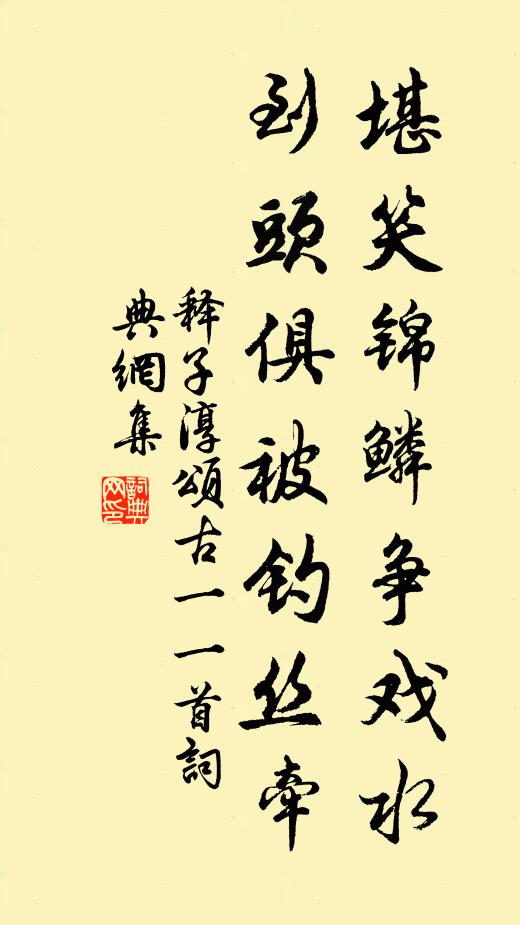 堪笑锦鳞争戏水
到頭俱被钓丝牵
释子淳頌古一一首詞
典網集
詞典网印